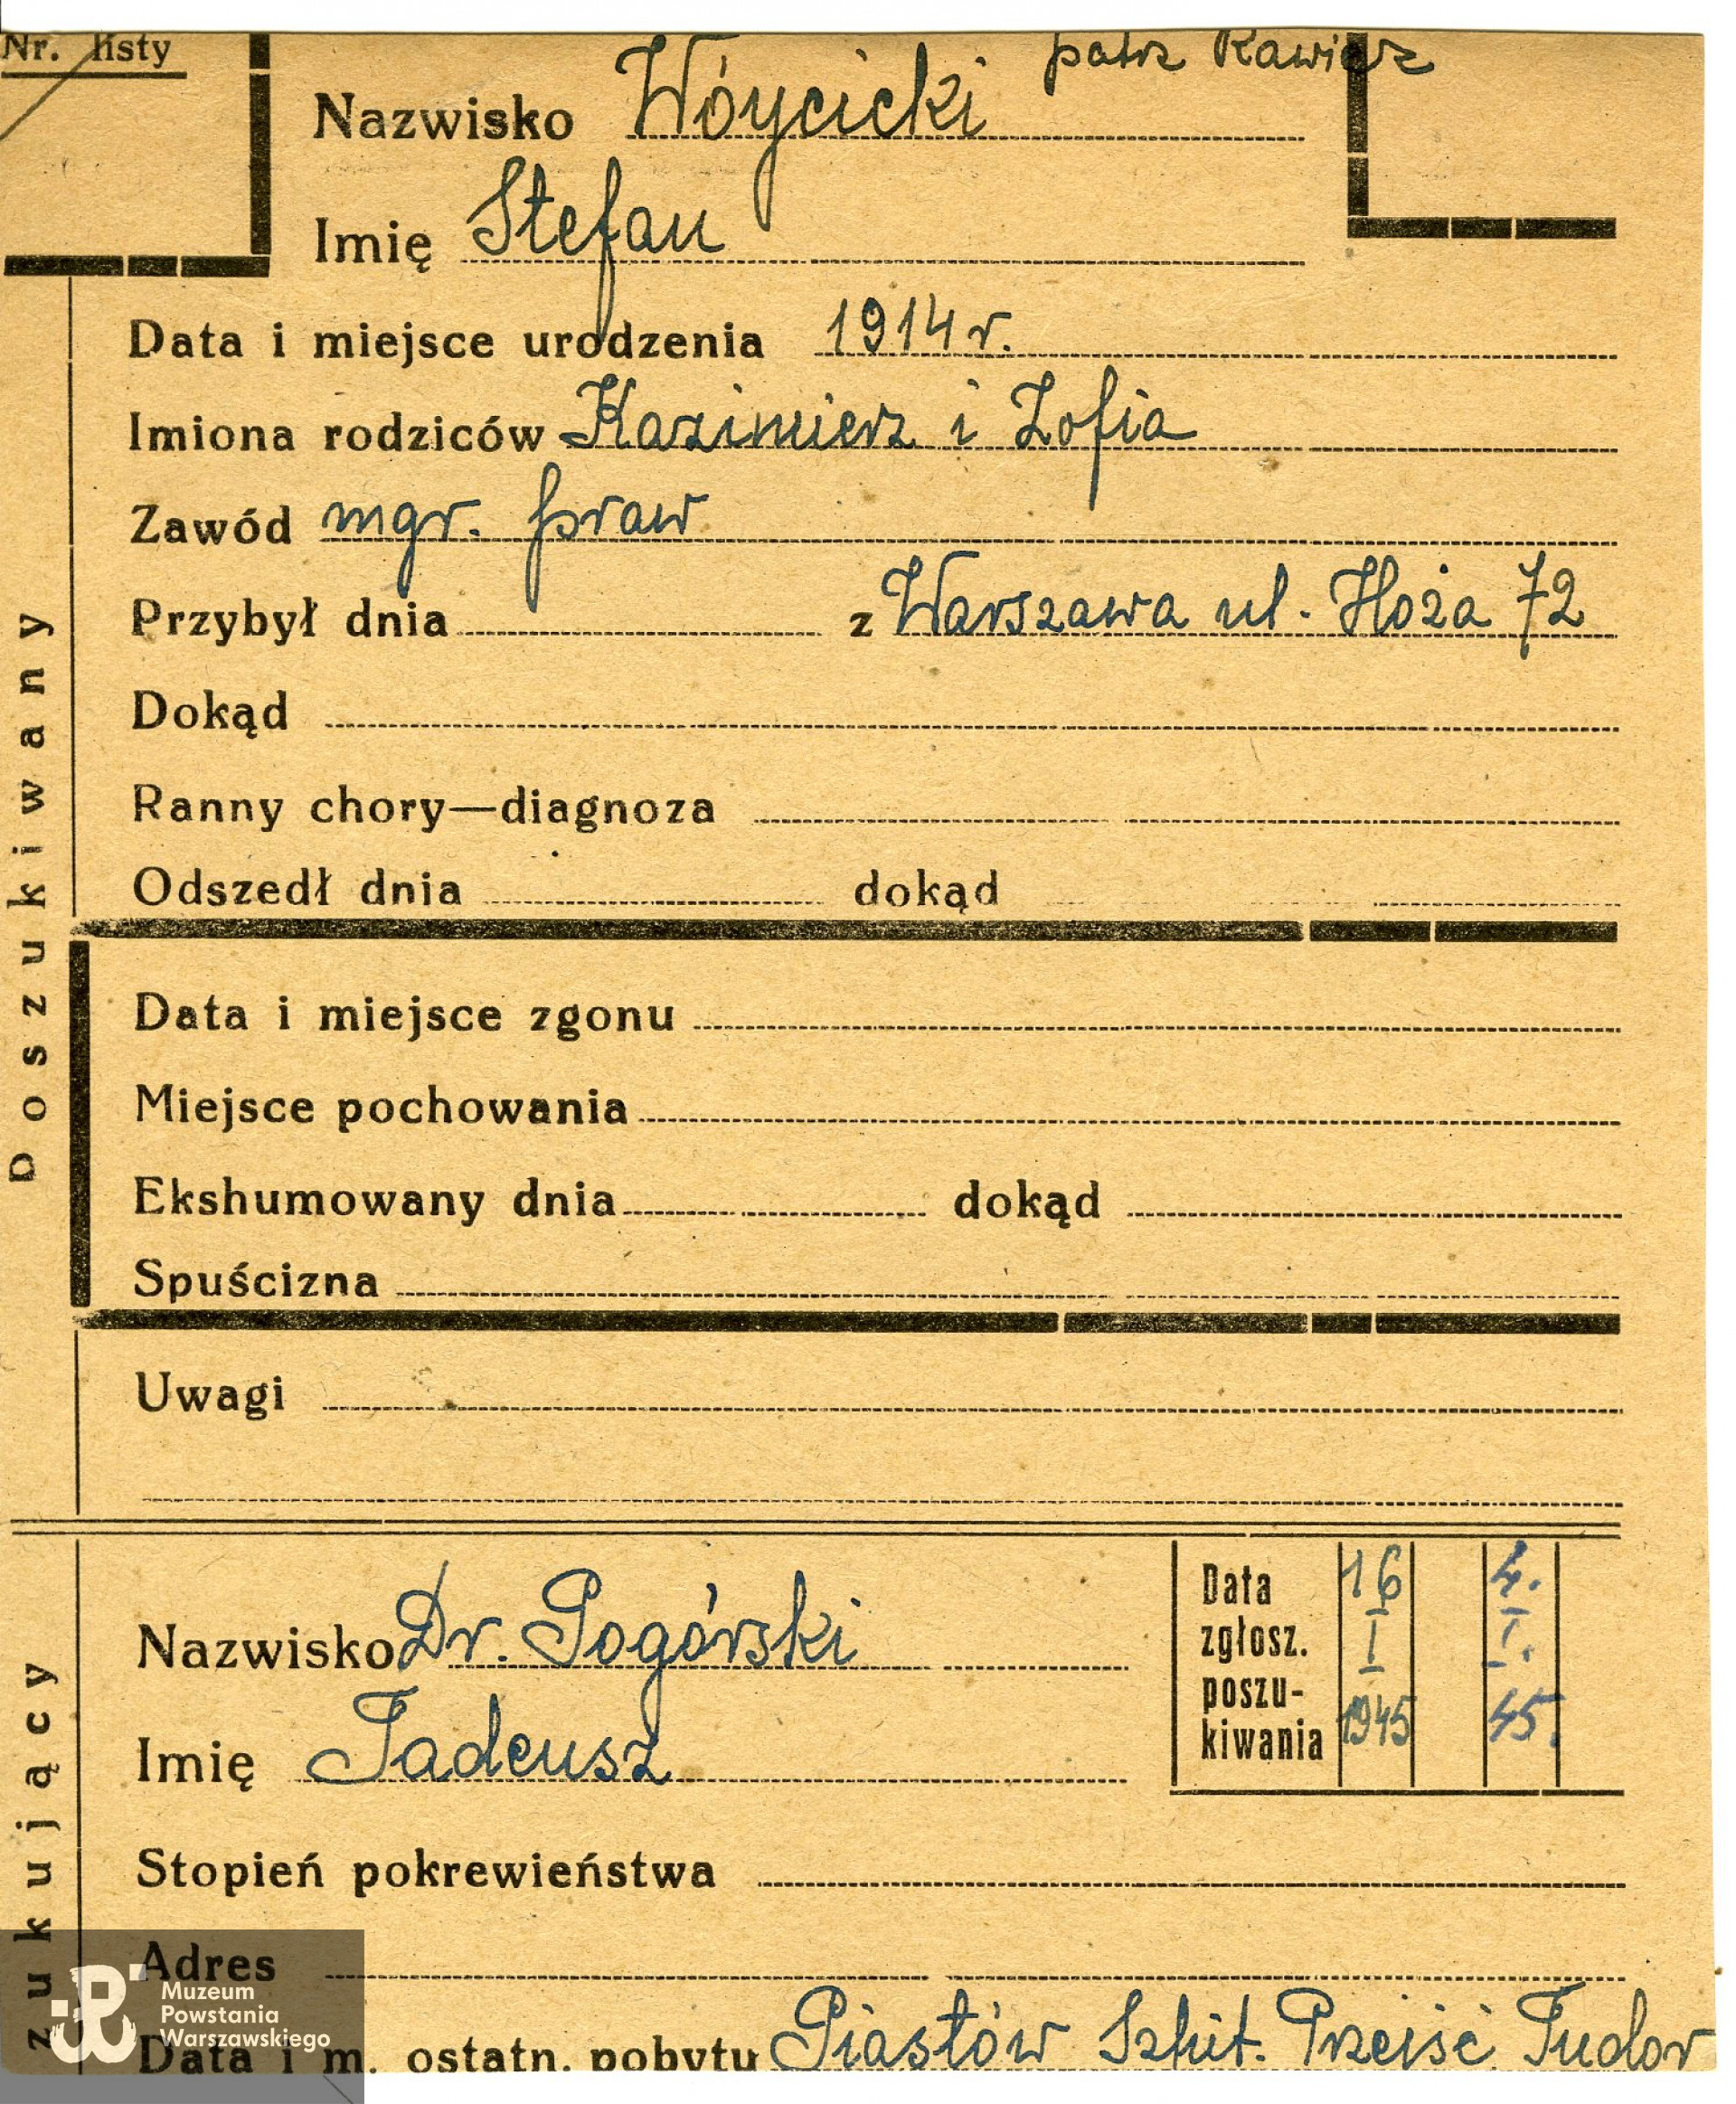 Nr. listy
patrz Rawicz
Nazwisko Wóycicki
Imię Stefan
Data i miejsce urodzenia 1914 r.
Imiona rodziców Kazimierz i Zofia
Zawód mgr. praw
Przybył dnia z Warszawa ul. Hoża 72
Dokąd
Ranny chory—diagnoza
Odszedł dnia dokąd
Data i miejsce zgonu
Miejsce pochowania
Ekshumowany dnia dokąd
Spuścizna
Uwagi
Doszukiwany
Nazwisko Dr. Pogórski
Imię Tadeusz
Data zgłosz. poszu-
kiwania
16 I 1945
4. I. 45.
Stopień pokrewieństwa
Adres
Data i m. ostatn. pobytu Piastów Szpit. Przejść. Tudor
zukujący
Muzeum
Powstania
Warszawskiego